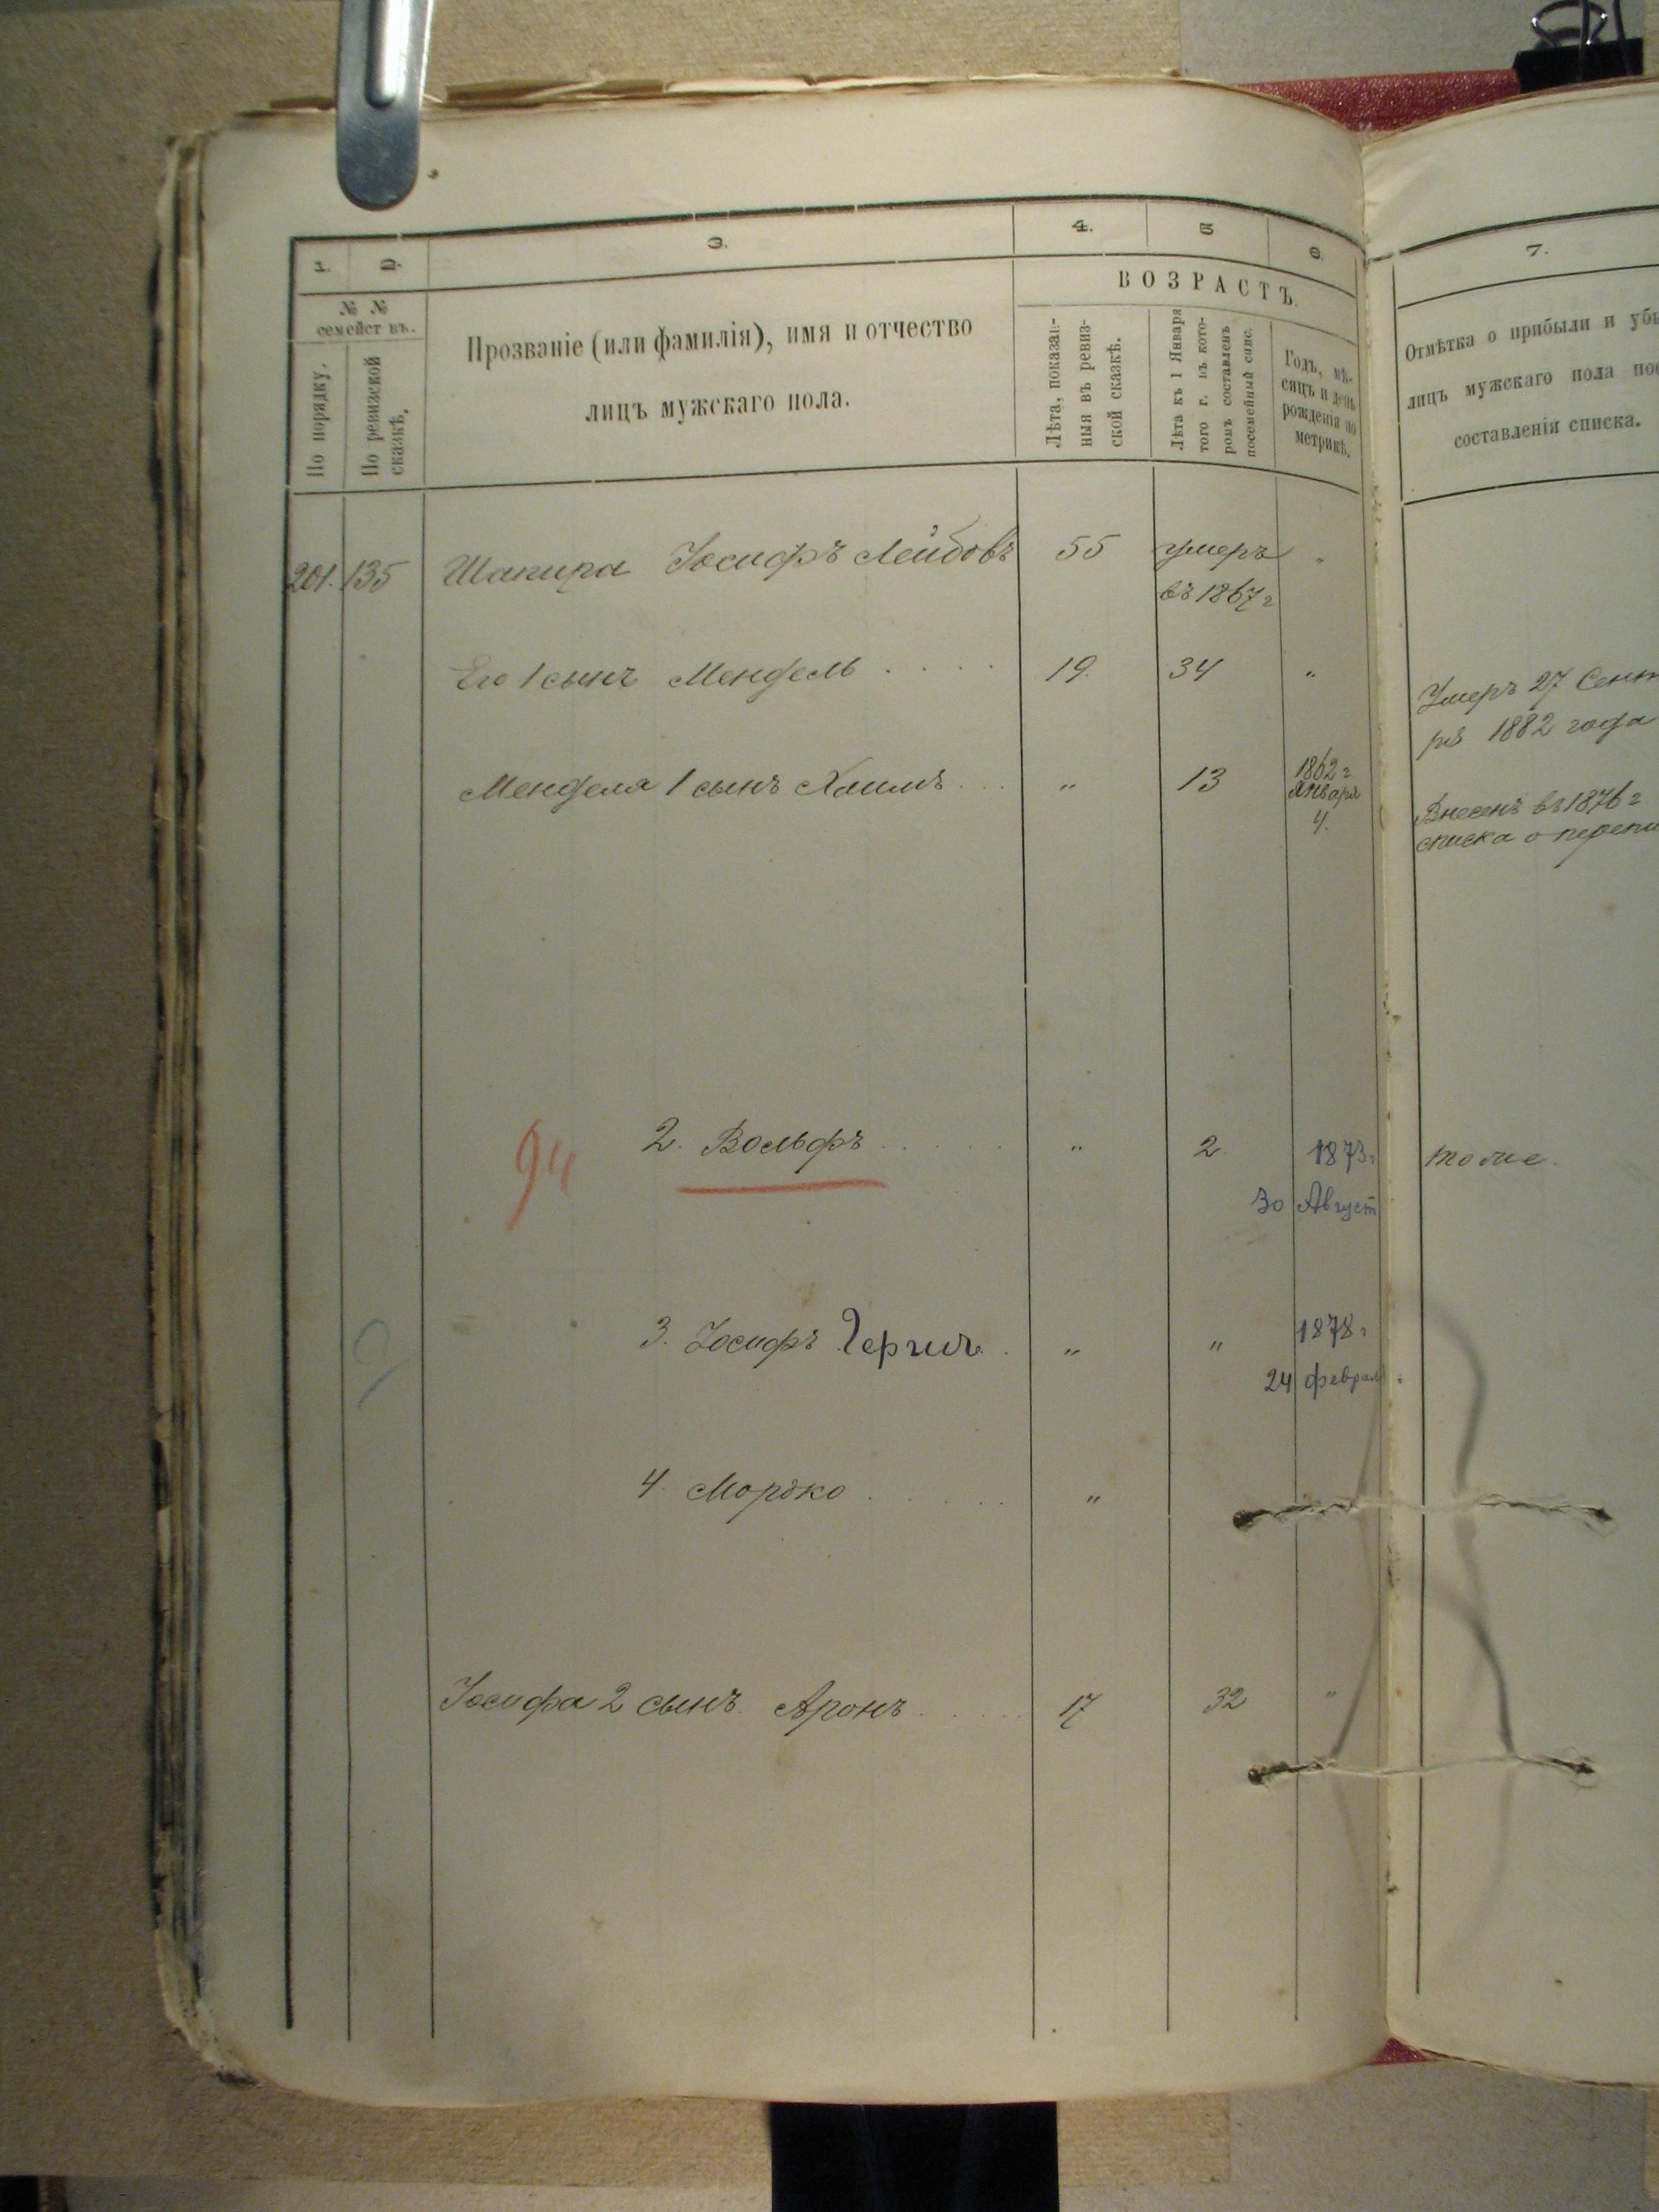 1. 2. 3. 4. 5 6. 7.
№ №
семействъ.
По порядку.
По ревизской
сказкѣ.
Прозваніе (или фамилія), имя и отчество
лицъ мужскаго пола.
ВОЗРАСТЪ.
Лѣта, показан-
ныя въ ревиз-
ской сказкѣ.
Лѣта къ 1 Января
того г. въ кото-
ромъ составленъ
посемейный спис.
Годъ, мѣ-
сяцъ и день
рожденія по
метрикѣ.
Отмѣтка о прибыли и убы
лицъ мужскаго пола пос
составленія списка.
201. 135 Шапира Іосифъ Лейбовъ 55 умеръ "
въ 1867 г
Его 1 сынъ Мендель 19. 34 "
Умеръ 27 Сент
ря 1882 года
Менделя 1 сынъ Хаимъ " 13 1862 г
Января
4.
Внесенъ въ 1876 г
списка о перепи
94 2. Вольфъ " 2. 1873 г. тоже.
30 Август
3. Іосифъ Герш " " 1878 г
24 феврал
4. Мордко "
Іосифа 2 сынъ. Аронъ 17 32 "